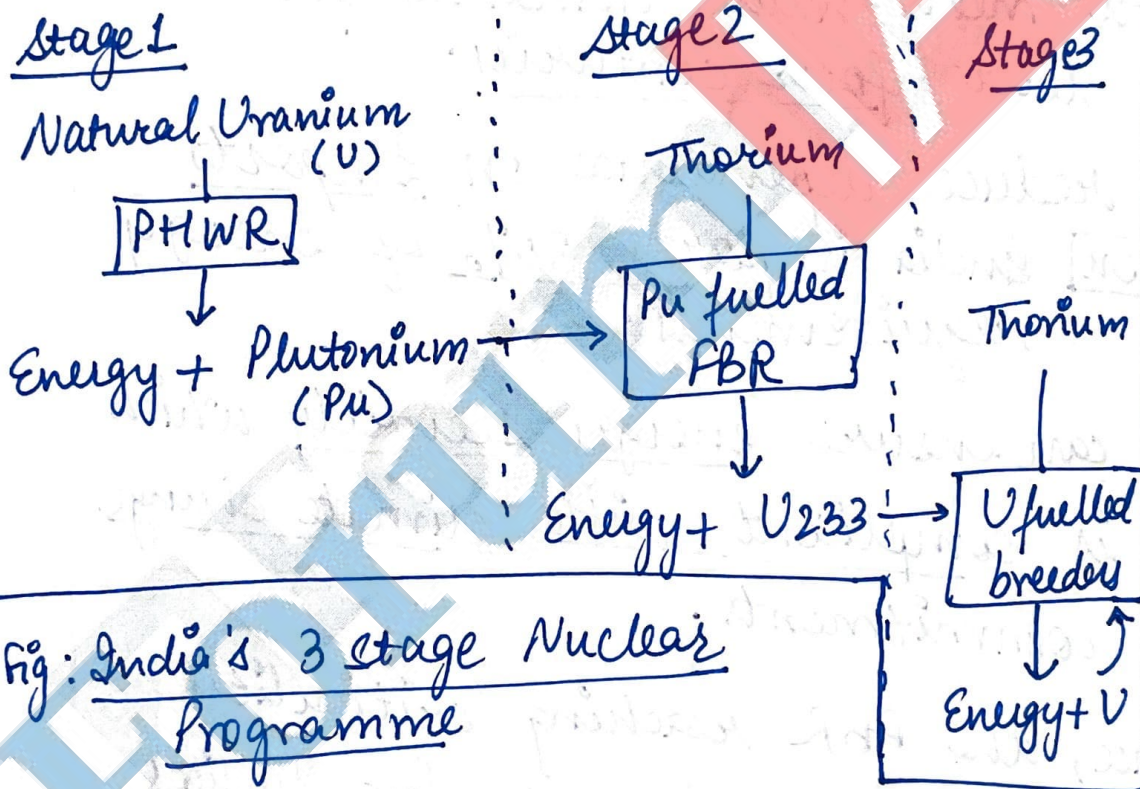 Stage 1
Natural Uranium
(U)
PHWR
Energy + Plutonium
(Pu)
Stage 2
Thorium
Pu fuelled
FBR
Energy + U233
Stage 3
Thorium
U fuelled
breeders
Energy + U
Fig: India's 3 stage Nuclear
Programme
Forum IA